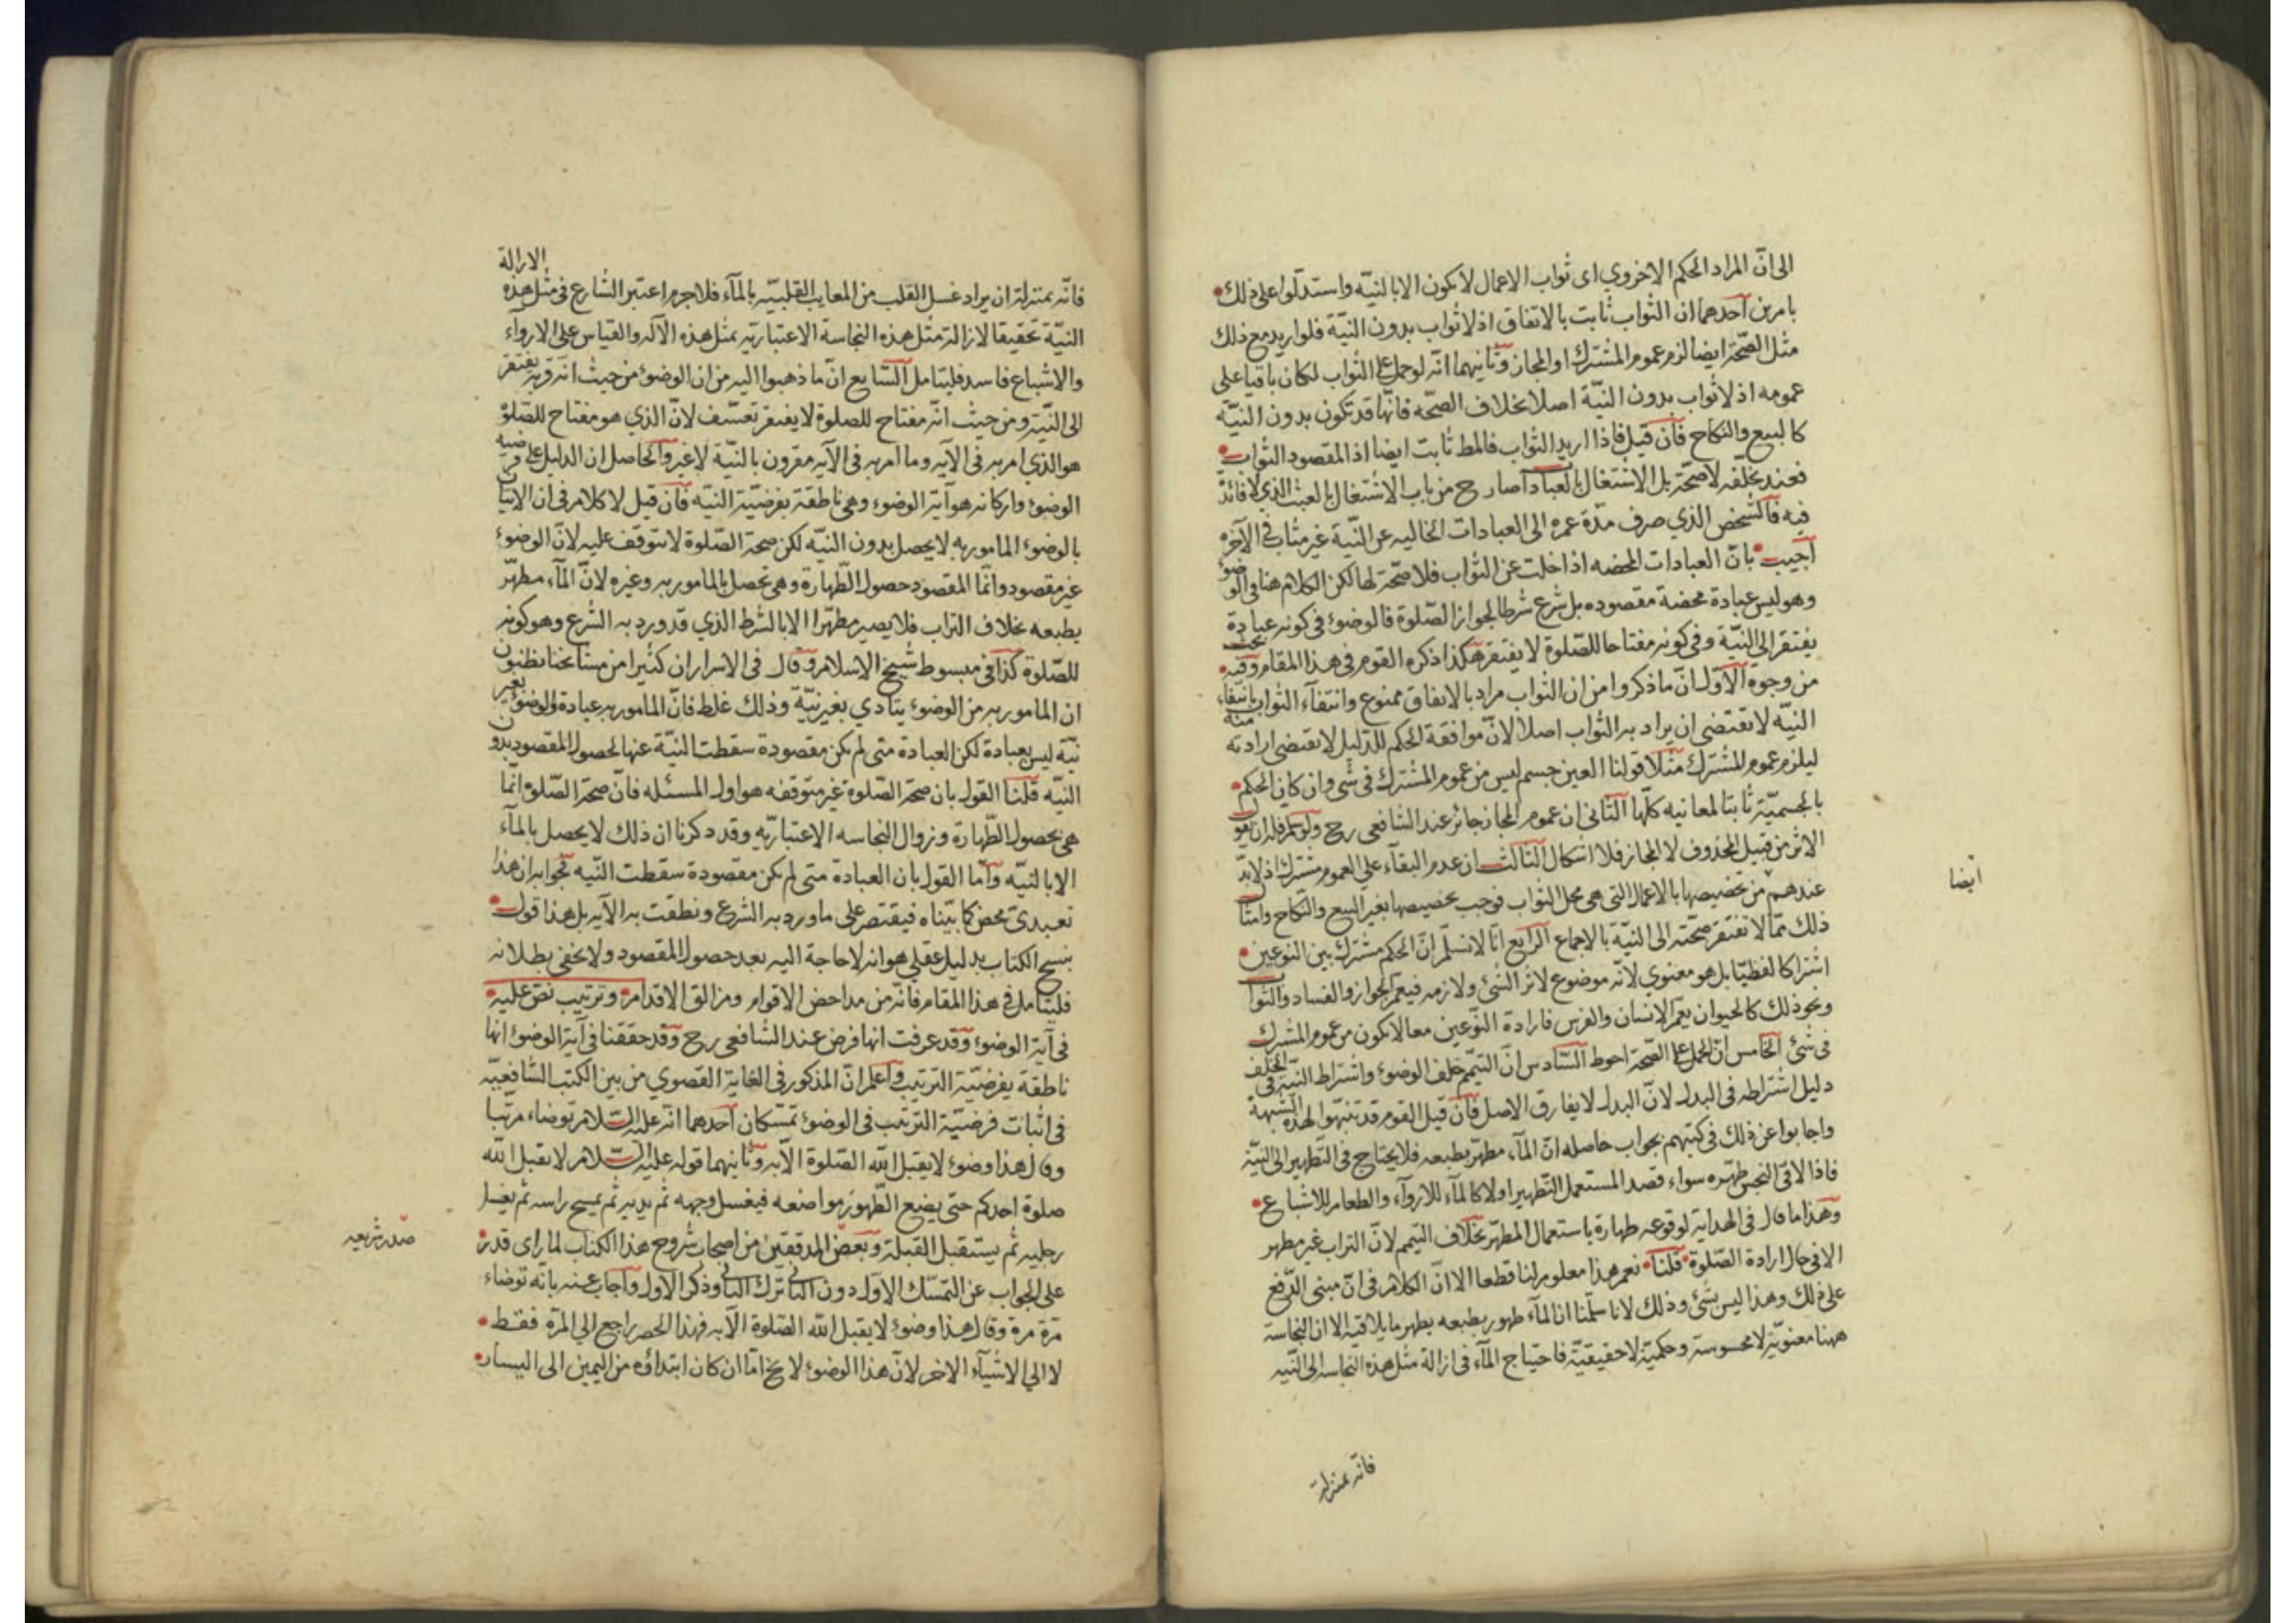 الى انّ المراد الحكم الاخروي اى ثواب الاعمال لا يكون الا بالنيّة واستدلّوا على ذلك
بامرين احدهما ان الثواب ثابت بالاتفاق اذ لا ثواب بدون النيّة فلو اريد مع ذلك
مثل الصّحّة ايضا لزم عموم المشترك او المجاز وثانيهما انّه لو حمل على الثواب لكان باقيا على
عمومه اذ لا ثواب بدون النيّة اصلا بخلاف الصحّة فانّها قد تكون بدون النيّة
كالبيع والنكاح فان قيل فاذا اريد الثواب فالمط ثابت ايضا اذ المقصود الثواب
فعند تخلّفه لا صحّة بل الاشتغال بالعبادات صار ح من باب الاشتغال بالعبث الذي لا فائدة
فيه فالشخص الذي صرف مدّة عمره الى العبادات الخاليه عن النيّة غير مثاب في الآخرة
اجيب بانّ العبادات المحضه اذا خلت عن الثواب فلا صحّة لها لكن الكلام هنا في الوضوء
وهو ليس عبادة محضة مقصوده بل شرع شرطا لجواز الصّلوة فالوضوء في كونه عبادة
يفتقر الى النيّة وفي كونه مفتاحا للصّلوة لا يفتقر هكذا ذكره القوم في هذا المقام وفيه بحث
من وجوه الاوّل انّ ما ذكروا من ان الثواب مراد بالاتفاق ممنوع وانتفاء الثواب بانتفاء
النيّه لا تقتضي ان يراد به الثواب اصلا لانّ موافقة الحكم للدليل لا يقتضى ارادته منه
ليلزم عموم المشترك مثلا قولنا العين جسم ليس من عموم المشترك في شئ وان كان الحكم
بالجسميّة ثابتا لمعانيه كلّها الثّاني ان عموم المجاز جائز عند الشافعى رح ولو سلّم فله ان يقول
الاثر من قبيل المحذوف لا المجاز فلا اشكال الثالث ان عدم البقاء على العموم مشترك اذ لا بدّ
عندهم من تخصيصها بالاعمال التى هى محل الثواب فوجب تخصيصها بغير البيع والنكاح وامثا
ايضا
ذلك ممّا لا تفتقر صحّته الى النيّة بالاجماع الرابع انّا لا نسلّم انّ الحكم مشترك بين النوعين
اشتراكا لفظيّا بل هو معنوي لانّه موضوع لاثر الشئ ولازمه فيعمّ الجواز والفساد والثواب
ونحو ذلك كالحيوان يعمّ الانسان والفرس فارادة النوعين معا لا يكون من عموم المشترك
فى شئ الخامس انّ الحمل على الصّحة احوط السّادس انّ التيمّم خلف الوضوء واشتراط النيّة في الخلف
دليل اشتراطه في البدل لانّ البدل لا يفارق الاصل فان قيل القوم قد تنبّهوا لهذه الشبهة
واجابوا عن ذلك في كتبهم بجواب حاصله انّ الماء مطهّر بطبعه فلا يحتاج في التّطهير الى النيّة
فاذا لاقى النجس طهّره سواء قصد المستعمل التّطهير او لا كالماء للارواء والطعام للاشباع
وهذا ما قال في الهداية لوقوعه طهارة باستعمال المطهّر بخلاف التيمم لانّ التراب غير مطهر
الا في حال ارادة الصّلوة قلنا نعم هذا معلوم لنا قطعا الا انّ الكلام في انّ مبنى الدّفع
على ذلك وهذا ليس بشئ وذلك لانا سلّمنا ان الماء طهور بطبعه يطهر ما يلاقيه الا ان النجاسة
ههنا معنويّة لا محسوسة وحكميّة لا حقيقيّة فاحتياج الماء في ازالة مثل هذه النجاسه الى النّيه
فانّه بمنزلة
فانّه بمنزلة ان يراد غسل القلب من المعايب القلبيّه بالماء فلا جرم اعتبر الشارع في مثل هذه الازالة
النيّة تحقيقا لازالة مثل هذه النجاسة الاعتباريّه بمثل هذه الآله والقياس على الارواء
والاشباع فاسد فليتأمل السّابع انّ ما ذهبوا اليه من ان الوضوء من حيث انّه قربة يفتقر
الى النيّة ومن حيث انّه مفتاح للصلوة لا يفتقر تعسّف لانّ الذي هو مفتاح للصّلوة
هو الذي امر به في الآيه وما امر به في الآيه مقرون بالنيّة لا غير والحاصل ان الدليل على فرضيه
الوضوء واركانه هو آية الوضوء وهى ناطقة بفرضيّة النيّه فان قيل لا كلام في ان الاتيان
بالوضوء المامور به لا يحصل بدون النيّه لكن صحة الصّلوة لا تتوقف عليه لانّ الوضوء
غير مقصود وانّما المقصود حصول الطّهارة وهى تحصل بالمامور به وغيره لانّ الماء مطهّر
بطبعه بخلاف التراب فلا يصير مطهّرا الا بالشرط الذي قد ورد به الشرع وهو كونه
للصّلوة كذا في مبسوط شيخ الاسلام وقال في الاسرار ان كثيرا من مشايخنا يظنون
ان المامور به من الوضوء يتادي بغير نيّة وذلك غلط فانّ المامور به عبادة والوضوء بغير
نيّة ليس بعبادة لكن العبادة متى لم تكن مقصودة سقطت النيّة عنها لحصول المقصود بدون
النيّه قلنا القول بان صحة الصّلوة غير متوقفه هو اول المسئله فانّ صحة الصّلوة انّما
هى بحصول الطّهارة وزوال النجاسه الاعتباريّه وقد ذكرنا ان ذلك لا يحصل بالماء
الا بالنيّه وامّا القول بان العبادة متى لم تكن مقصودة سقطت النّيه فجوابه ان هذا
تعبديّ محض كما بيّناه فيقتصر على ما ورد به الشرع ونطقت به الآيه بل هذا قول
بنسخ الكتاب بدليل عقلي هو انه لا حاجة اليه بعد حصول المقصود ولا يخفى بطلانه
فليتامل في هذا المقام فانّه من مداحض الاقوام ومزالق الاقدام وترتيب نصّ عليه
في آية الوضوء وقد عرفت انها فرض عند الشافعى رح وقد حققنا في آية الوضوء انها
ناطقة بفرضيّة الترتيب واعلم انّ المذكور في الغاية القصوي من بين الكتب الشافعيّه
في اثبات فرضيّة الترتيب في الوضوء تمسّكان احدهما انّه عليه السّلام توضاء مرتّبا
وقال هذا وضوء لا يقبل الله الصّلوة الّا به وثانيهما قوله عليه السّلام لا يقبل الله
صلوة احدكم حتى يضع الطّهور مواضعه فيغسل وجهه ثم يديه ثم يمسح راسه ثم يغسل
رجليه ثم يستقبل القبلة وبعض المدققين من اصحاب شروح هذا الكتاب لما راى قدرة
صدر شريعه
على الجواب عن التمسّك الاوّل دون الثاني ترك الثاني وذكر الاول واجاب عنه بانّه توضاء
مرّة مرة وقال هذا وضوء لا يقبل الله الصّلوة الّا به فهذا الحصر راجع الي المرّة فقط
لا الي الاشيآء الاخر لانّ هذا الوضوء لا يخ امّا ان كان ابتداؤه من اليمين الى اليسار